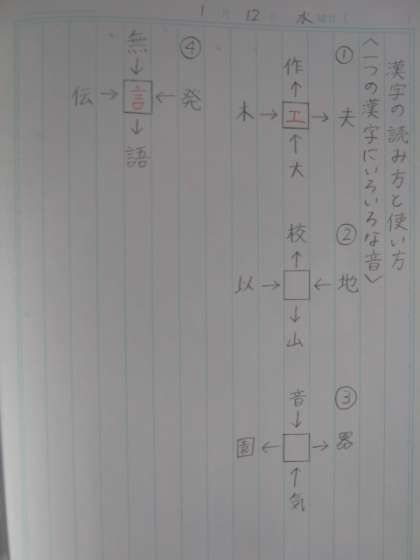 1月12日水曜日
漢字の読み方と使い方
〈一つの漢字にいろいろな音〉
①
作
↑
木→工→夫
↑
大
②
校
↑
以→□←地
↓
山
③
音
↓
園←□→器
↑
気
④
無
↓
伝→言←発
↓
語